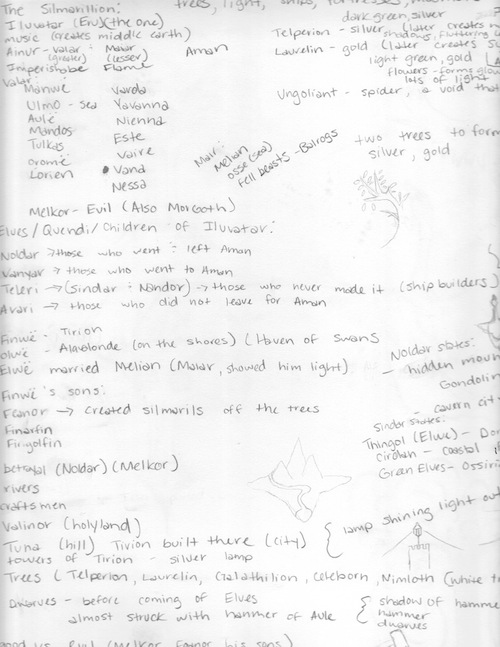 The Silmarillion:
trees, light, ships, fortresses,
Iluvatar (Eru)(the one)
music (creates middle earth)
Ainur - valar : Maiar
(greater) (lesser)
Aman
Imperishabe Flame
dark green, silver
Telperion - silver (later creates
shadows, fluttering
Laurelin - gold (later creates
light green, gold
flowers - forms
lots of light
Ungoliant - spider, a void that
Valar
Manwë Varda
Ulmo - sea Yavanna
Aulë Nienna
Mandos Este
Tulkas Vaire
Oromë Vana
Lorien Nessa
Maiar:
Melian
osse (sea)
fell beasts - Balrogs
two trees to form
silver, gold
Melkor - Evil (Also Morgoth)
Elves/Quendi/Children of Iluvatar:
Noldar → those who went : left Aman
Vanyar → those who went to Aman
Teleri → (Sindar : Nandor) → those who never made it (ship builders)
Avari → those who did not leave for Aman
Finwë - Tirion
olwë - Alqualonde (on the shores) (Haven of swans
Elwë married Melian (Maiar, showed him light)
Noldar states:
- hidden
Gondolin
- cavern
Finwë's sons:
Feanor → created silmarils off the trees
Finarfin
Fingolfin
Sindar states:
Thingol (Elwe) -
Cirdan - coastal
Green Elves -
betrayal (Noldar) (Melkor)
rivers
craftsmen
Valinor (holyland)
Tuna (hill) Tirion built there (city)
towers of Tirion - silver lamp
lamp shining light out
Trees (Telperion, Laurelin, Galathilion, Celeborn, Nimloth (white
Dwarves - before coming of Elves
almost struck with hammer of Aule
shadow of
hammer
dwarves
good vs. Evil (Melkor, Feanor, his sons)